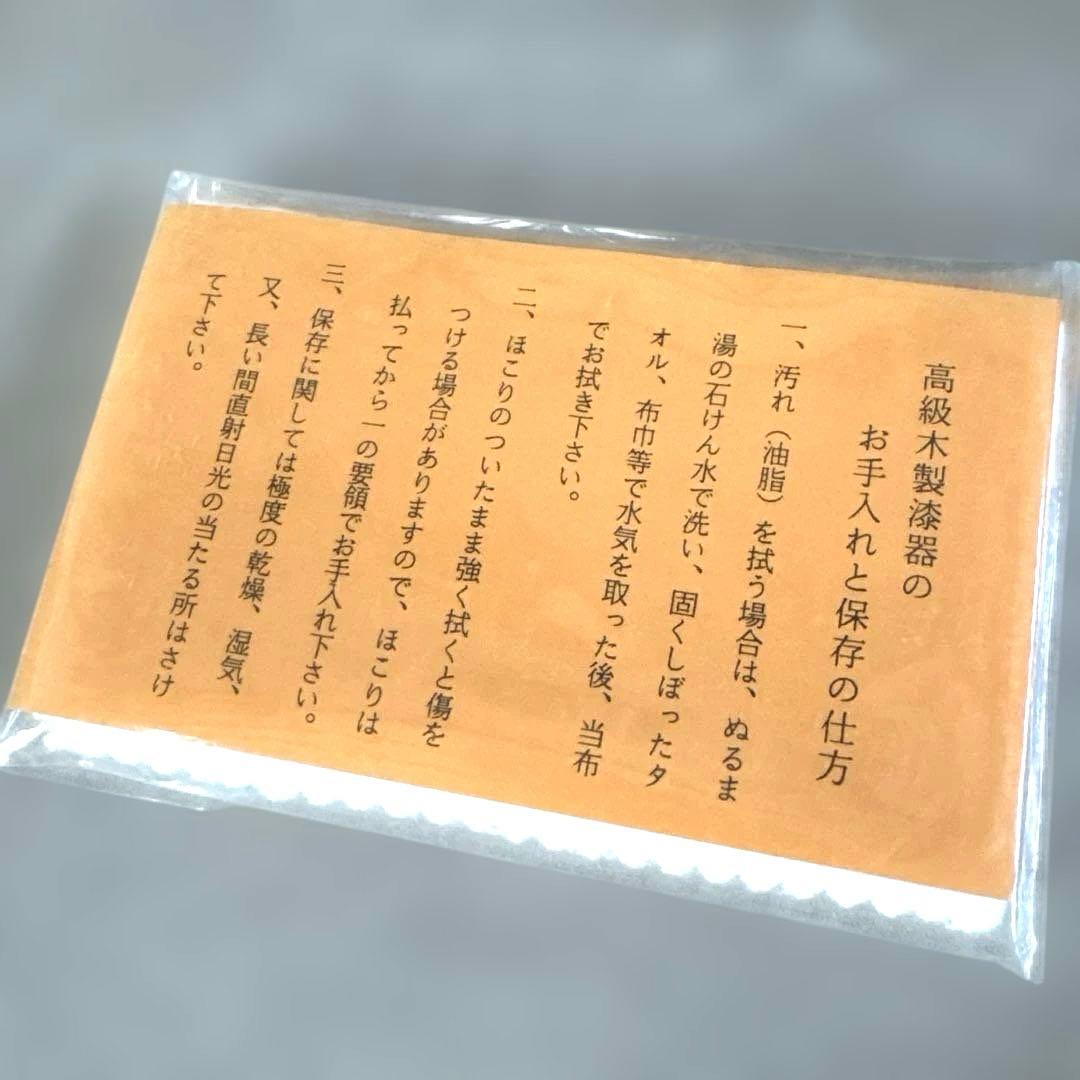 高級木製漆器の
お手入れと保存の仕方
一、汚れ（油脂）を拭う場合は、ぬるま
湯の石けん水で洗い、固くしぼったタ
オル、布巾等で水気を取った後、当布
でお拭き下さい。
二、ほこりのついたまま強く拭くと傷を
つける場合がありますので、ほこりは
払ってから一の要領でお手入れ下さい。
三、保存に関しては極度の乾燥、湿気、
又、長い間直射日光の当たる所はさけ
て下さい。